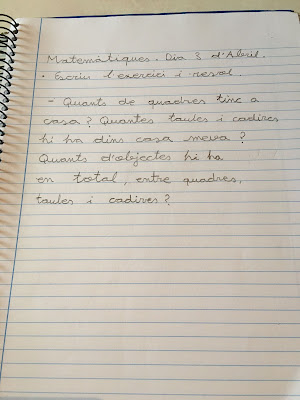 Matemàtiques. Dia 3 d'Abril.
• Escriu l'exercici i resol.
- Quants de quadres tinc a
casa? Quantes taules i cadires
hi ha dins casa meva?
Quants d'objectes hi ha
en total, entre quadres,
taules i cadires?